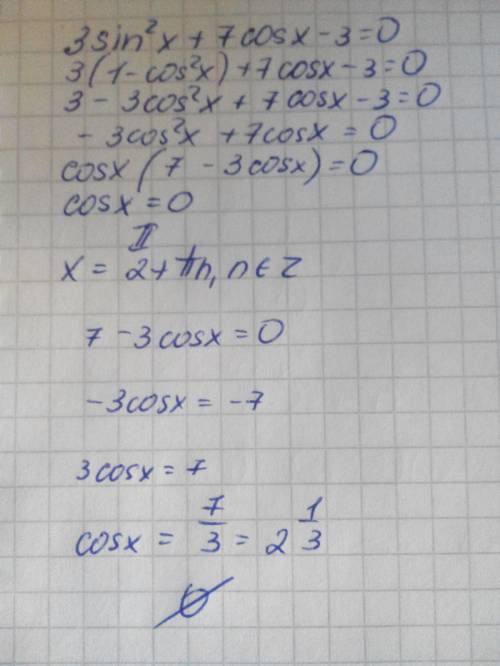 3sin²x + 7cosx - 3 = 0
3(1 - cos²x) + 7cosx - 3 = 0
3 - 3cos²x + 7cosx - 3 = 0
- 3cos²x + 7cosx = 0
cosx (7 - 3cosx) = 0
cosx = 0
x = π/2 + πn, n ∈ Z
7 - 3cosx = 0
-3cosx = -7
3cosx = 7
cosx = 7/3 = 2 1/3
∅